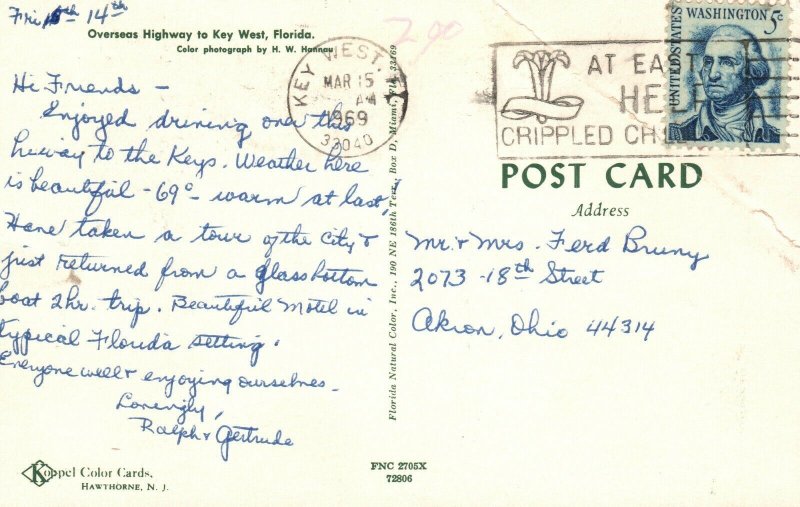 Fri 14th
Overseas Highway to Key West, Florida.
Color photograph by H. W. Hannau
Hi Friends -
Enjoyed driving over this
hiway to the Keys. Weather here
is beautiful - 69° - warm at last,
Have taken a tour of the city &
just returned from a glass bottom
boat 2 hr. trip. Beautiful Motel in
typical Florida setting.
Everyone well & enjoying ourselves.
Lovingly,
Ralph & Gertrude
Koppel Color Cards,
HAWTHORNE, N. J.
290
KEY WEST,
MAR 15
AM
1969
33040
Florida Natural Color, Inc., 190 NE 186th Terr., Box D, Miami, Fla. 33169
FNC 2705X
72806
AT EAST
HE
CRIPPLED CH
UNITED STATES
WASHINGTON 5c
POST CARD
Address
Mr. & Mrs. Ferd Bruny
2073 - 18th Street
Akron, Ohio 44314